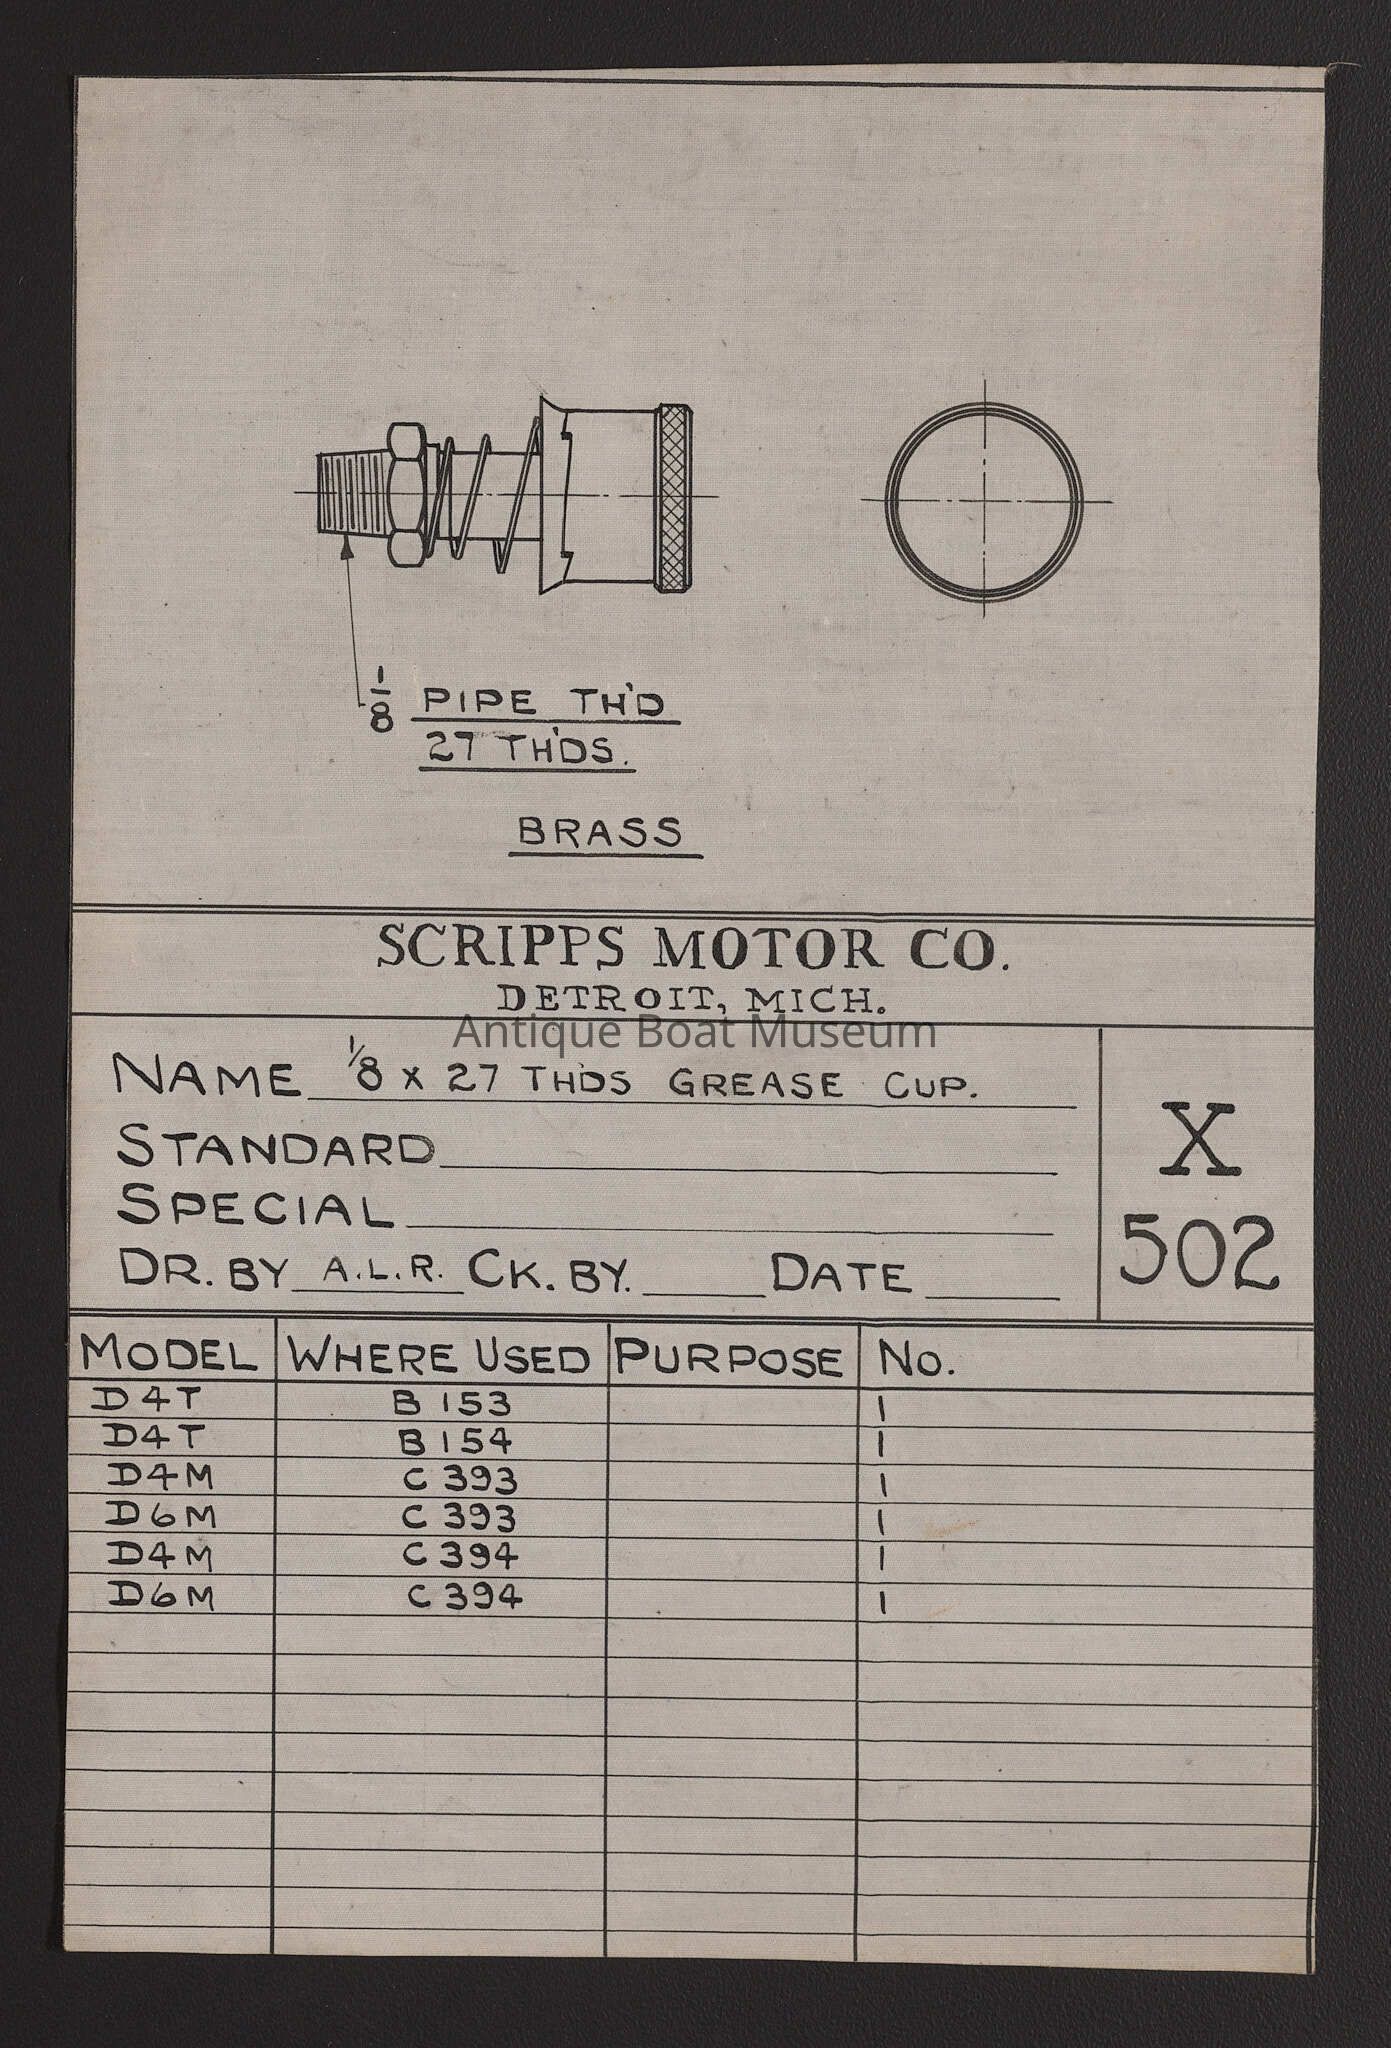 1/8 PIPE TH'D
27 TH'DS.
BRASS
SCRIPPS MOTOR CO.
DETROIT, MICH.
Antique Boat Museum
NAME 1/8 X 27 TH'DS GREASE CUP.
STANDARD
SPECIAL
DR. BY A.L.R. CK. BY. DATE
X
502
MODEL WHERE USED PURPOSE NO.
D4T B 153 1
D4T B 154 1
D4M C 393 1
D6M C 393 1
D4M C 394 1
D6M C 394 1